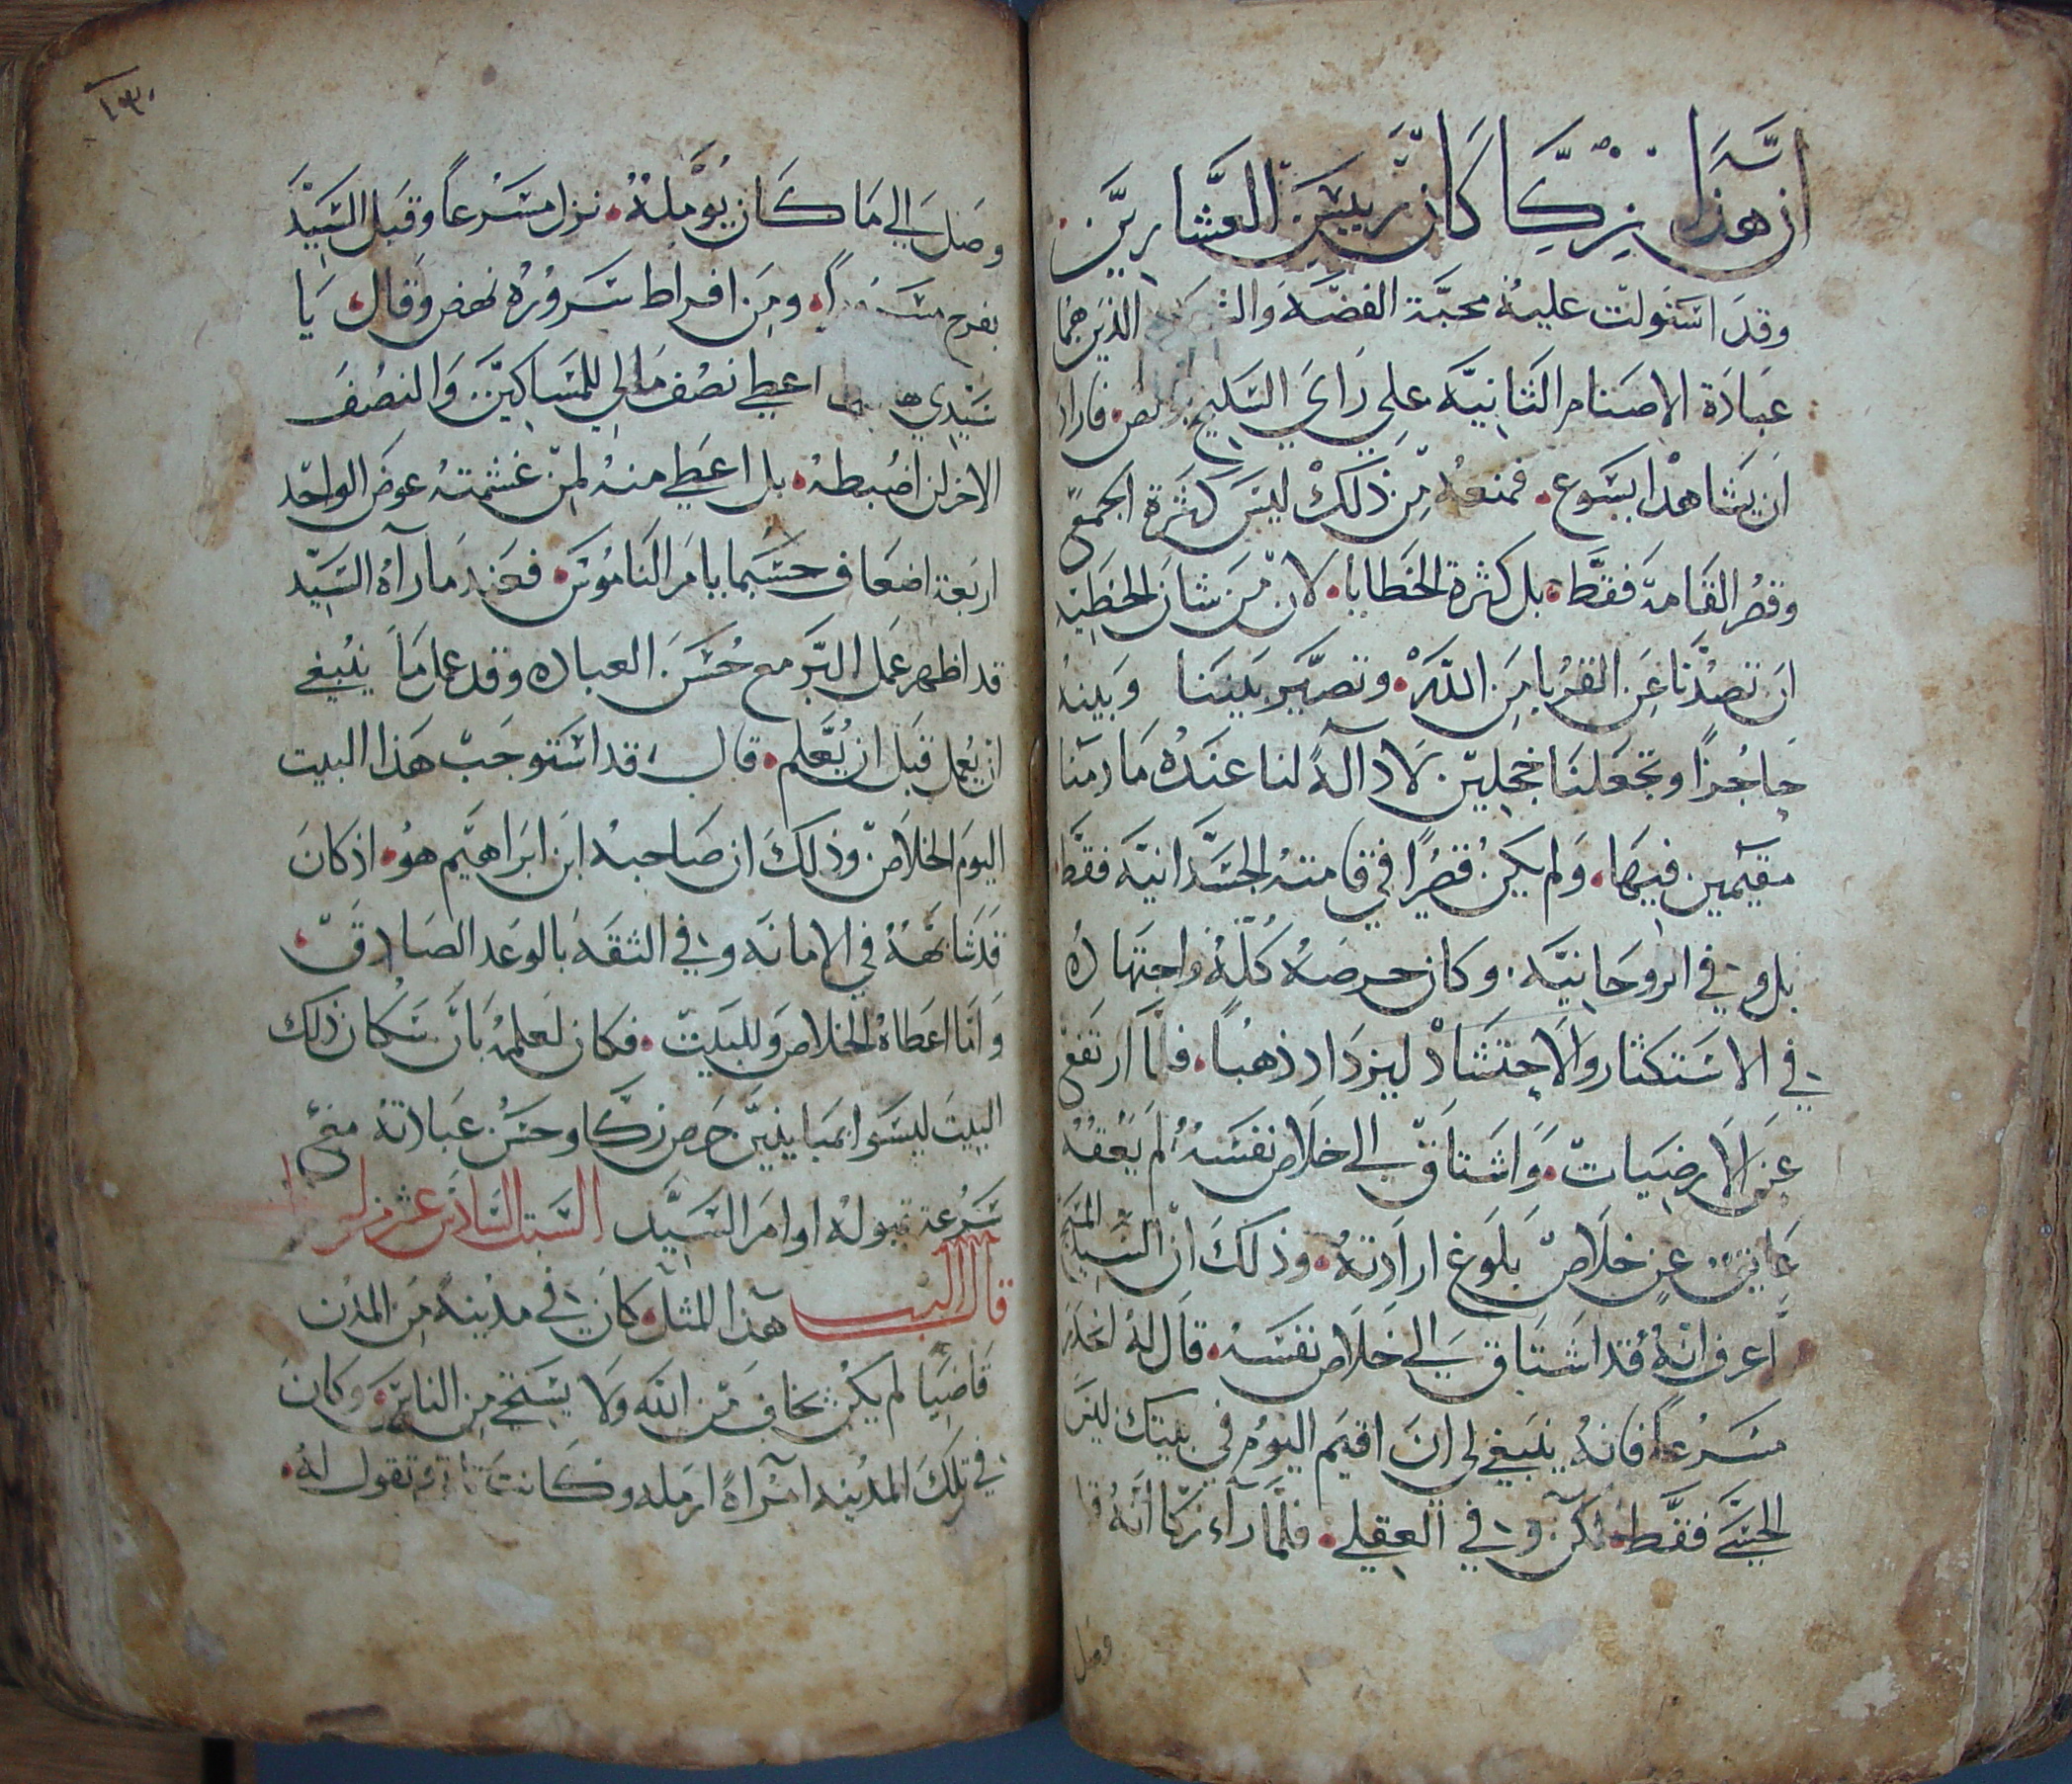 ان هذا زكّا كان رييس العشارين
وقد استولت عليه محبّة الفضّه الذين هما
عبادة الاصنام الثانيّه علي راي السليح بولص فاراد
ان يشاهد ايسوع فمنعه من ذلك ليس كثرة الجمع
وقصر القامة فقط بل كثرة الخطايا لان من شان الخطيه
ان تصدّنا عن القربا من الله وتصيّر بيننا وبينه
حاجزًا وتجعلنا خجلين لا دآلة لنا عنده ما دمنا
مقيمين فيها ولم يكن قصرًا في قامته الجسدانيّه فقط
بل وفي الروحانيّه وكان حرصه كلّه واجتهاده
في الاستكثار والاحتشاد ليزداد ذهبًا فلما ارتفع
عن الارضيات واشتاق الي خلاص نفسه لم يعقه
عايق عن خلاص بلوغ ارادته وذلك ان السيد المسيح
اعرف انه قد اشتاق الي خلاص نفسه قال له انحدر
مسرعًا فانه ينبغي لي ان اقيم اليوم في بيتك ليس
الحسّي فقط لكن وفي العقلي فلمّا رآء زكّا انه قد
وصل
١٣٠
وصل الي ما كان يؤمله نزل مسرعاً وقبل السيّد
بفرح ومن افراط سروره نهض وقال يا
سيّدي اعطي نصف مالي للمساكين والنصف
الاخر لن اضبطه بل اعطي منه لمن غشمته عوض الواحد
اربعة اضعاف حسبما يامر الناموس فعند ما رآه السيّد
قد اظهر عمل البر مع حُسن العباده وقد عمل ما ينبغي
ان يعمل قبل ان يُعلّم قال قد استوجب هذا البيت
اليوم الخلاص وذلك ان صاحبه ابن ابراهيم هو اذ كان
قد شابهه في الامانه وفي الثقه بالوعد الصادق
وانا اعطاه الخلاص وللبيت فكان لعلمه بان سكان ذلك
البيت ليسوا بمباينين حرص زكّا وحسن عبادته مع
سرعة قبوله اوامر السيّد السبت السادس عشر من
قال هذا المثل كان في مدينه من المدن
قاضيًا لم يكن يخاف من الله ولا يستحي من الناس وكان
في تلك المدينه امراة ارمله وكانت تاتيه وتقول له